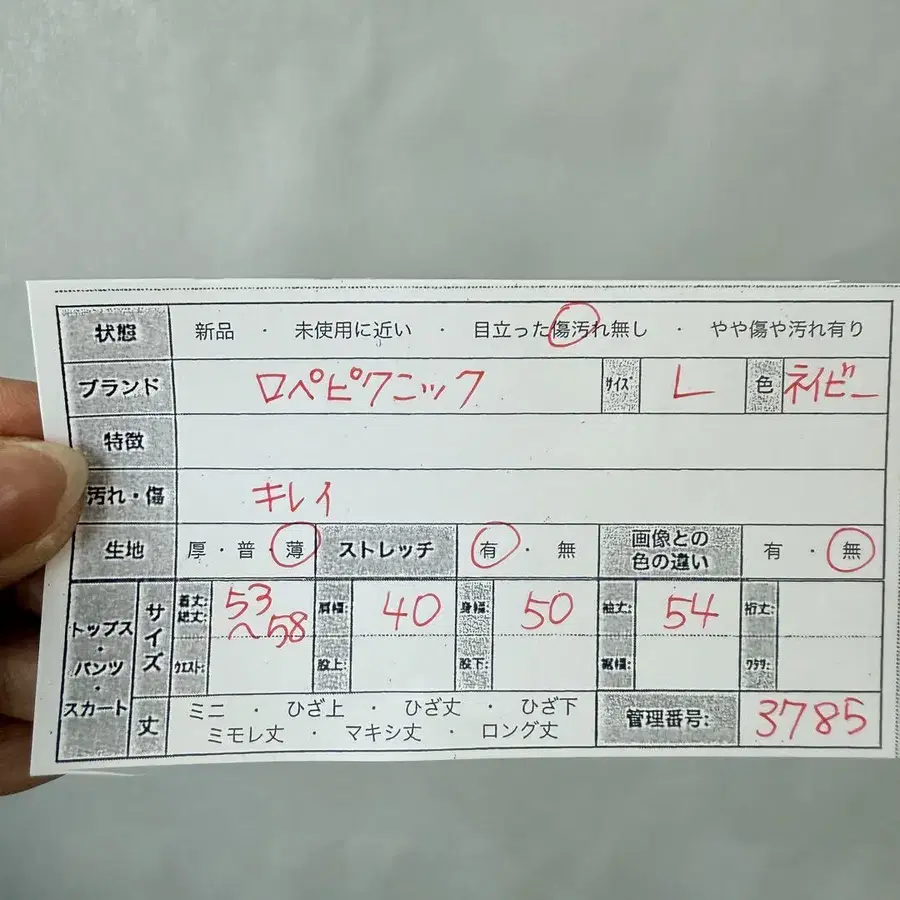 状態 新品 ・ 未使用に近い ・ 目立った傷汚れ無し ・ やや傷や汚れ有り
ブランド ロペピクニック サイズ L 色 ネイビー
特徴
汚れ・傷 キレイ
生地 厚・普・薄 ストレッチ 有 ・ 無 画像との色の違い 有 ・ 無
トップス・パンツ・スカート サイズ 着丈: 総丈: 53〜58 肩幅: 40 身幅: 50 袖丈: 54 裄丈:
ウエスト: 股上: 股下: 裾幅: ワタリ:
丈 ミニ ・ ひざ上 ・ ひざ丈 ・ ひざ下
ミモレ丈 ・ マキシ丈 ・ ロング丈
管理番号: 3785